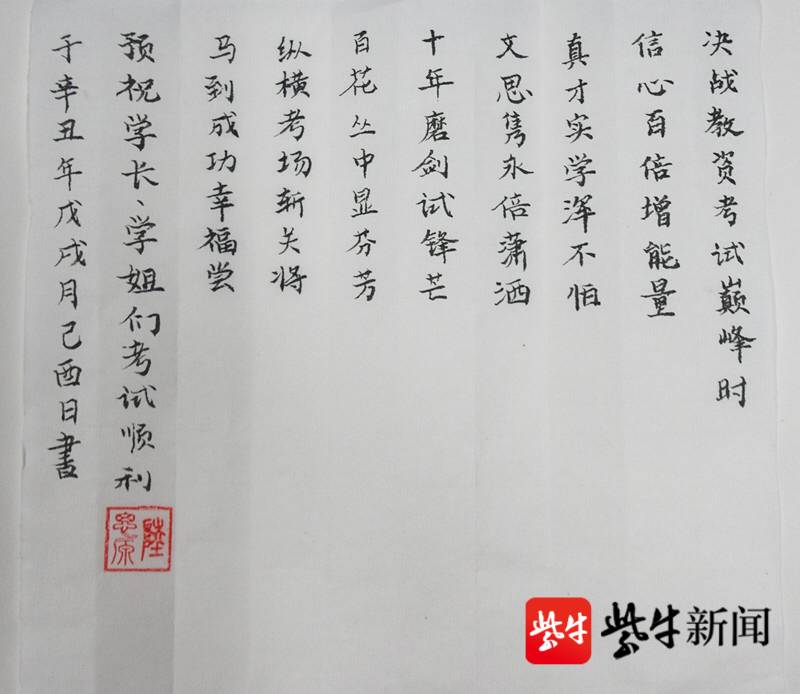 决战教资考试巅峰时
信心百倍增能量
真才实学浑不怕
文思隽永倍潇洒
十年磨剑试锋芒
百花丛中显芬芳
纵横考场斩关将
马到成功幸福尝
预祝学长、学姐们考试顺利
于辛丑年戊戌月己酉日書
紫牛
紫牛新闻